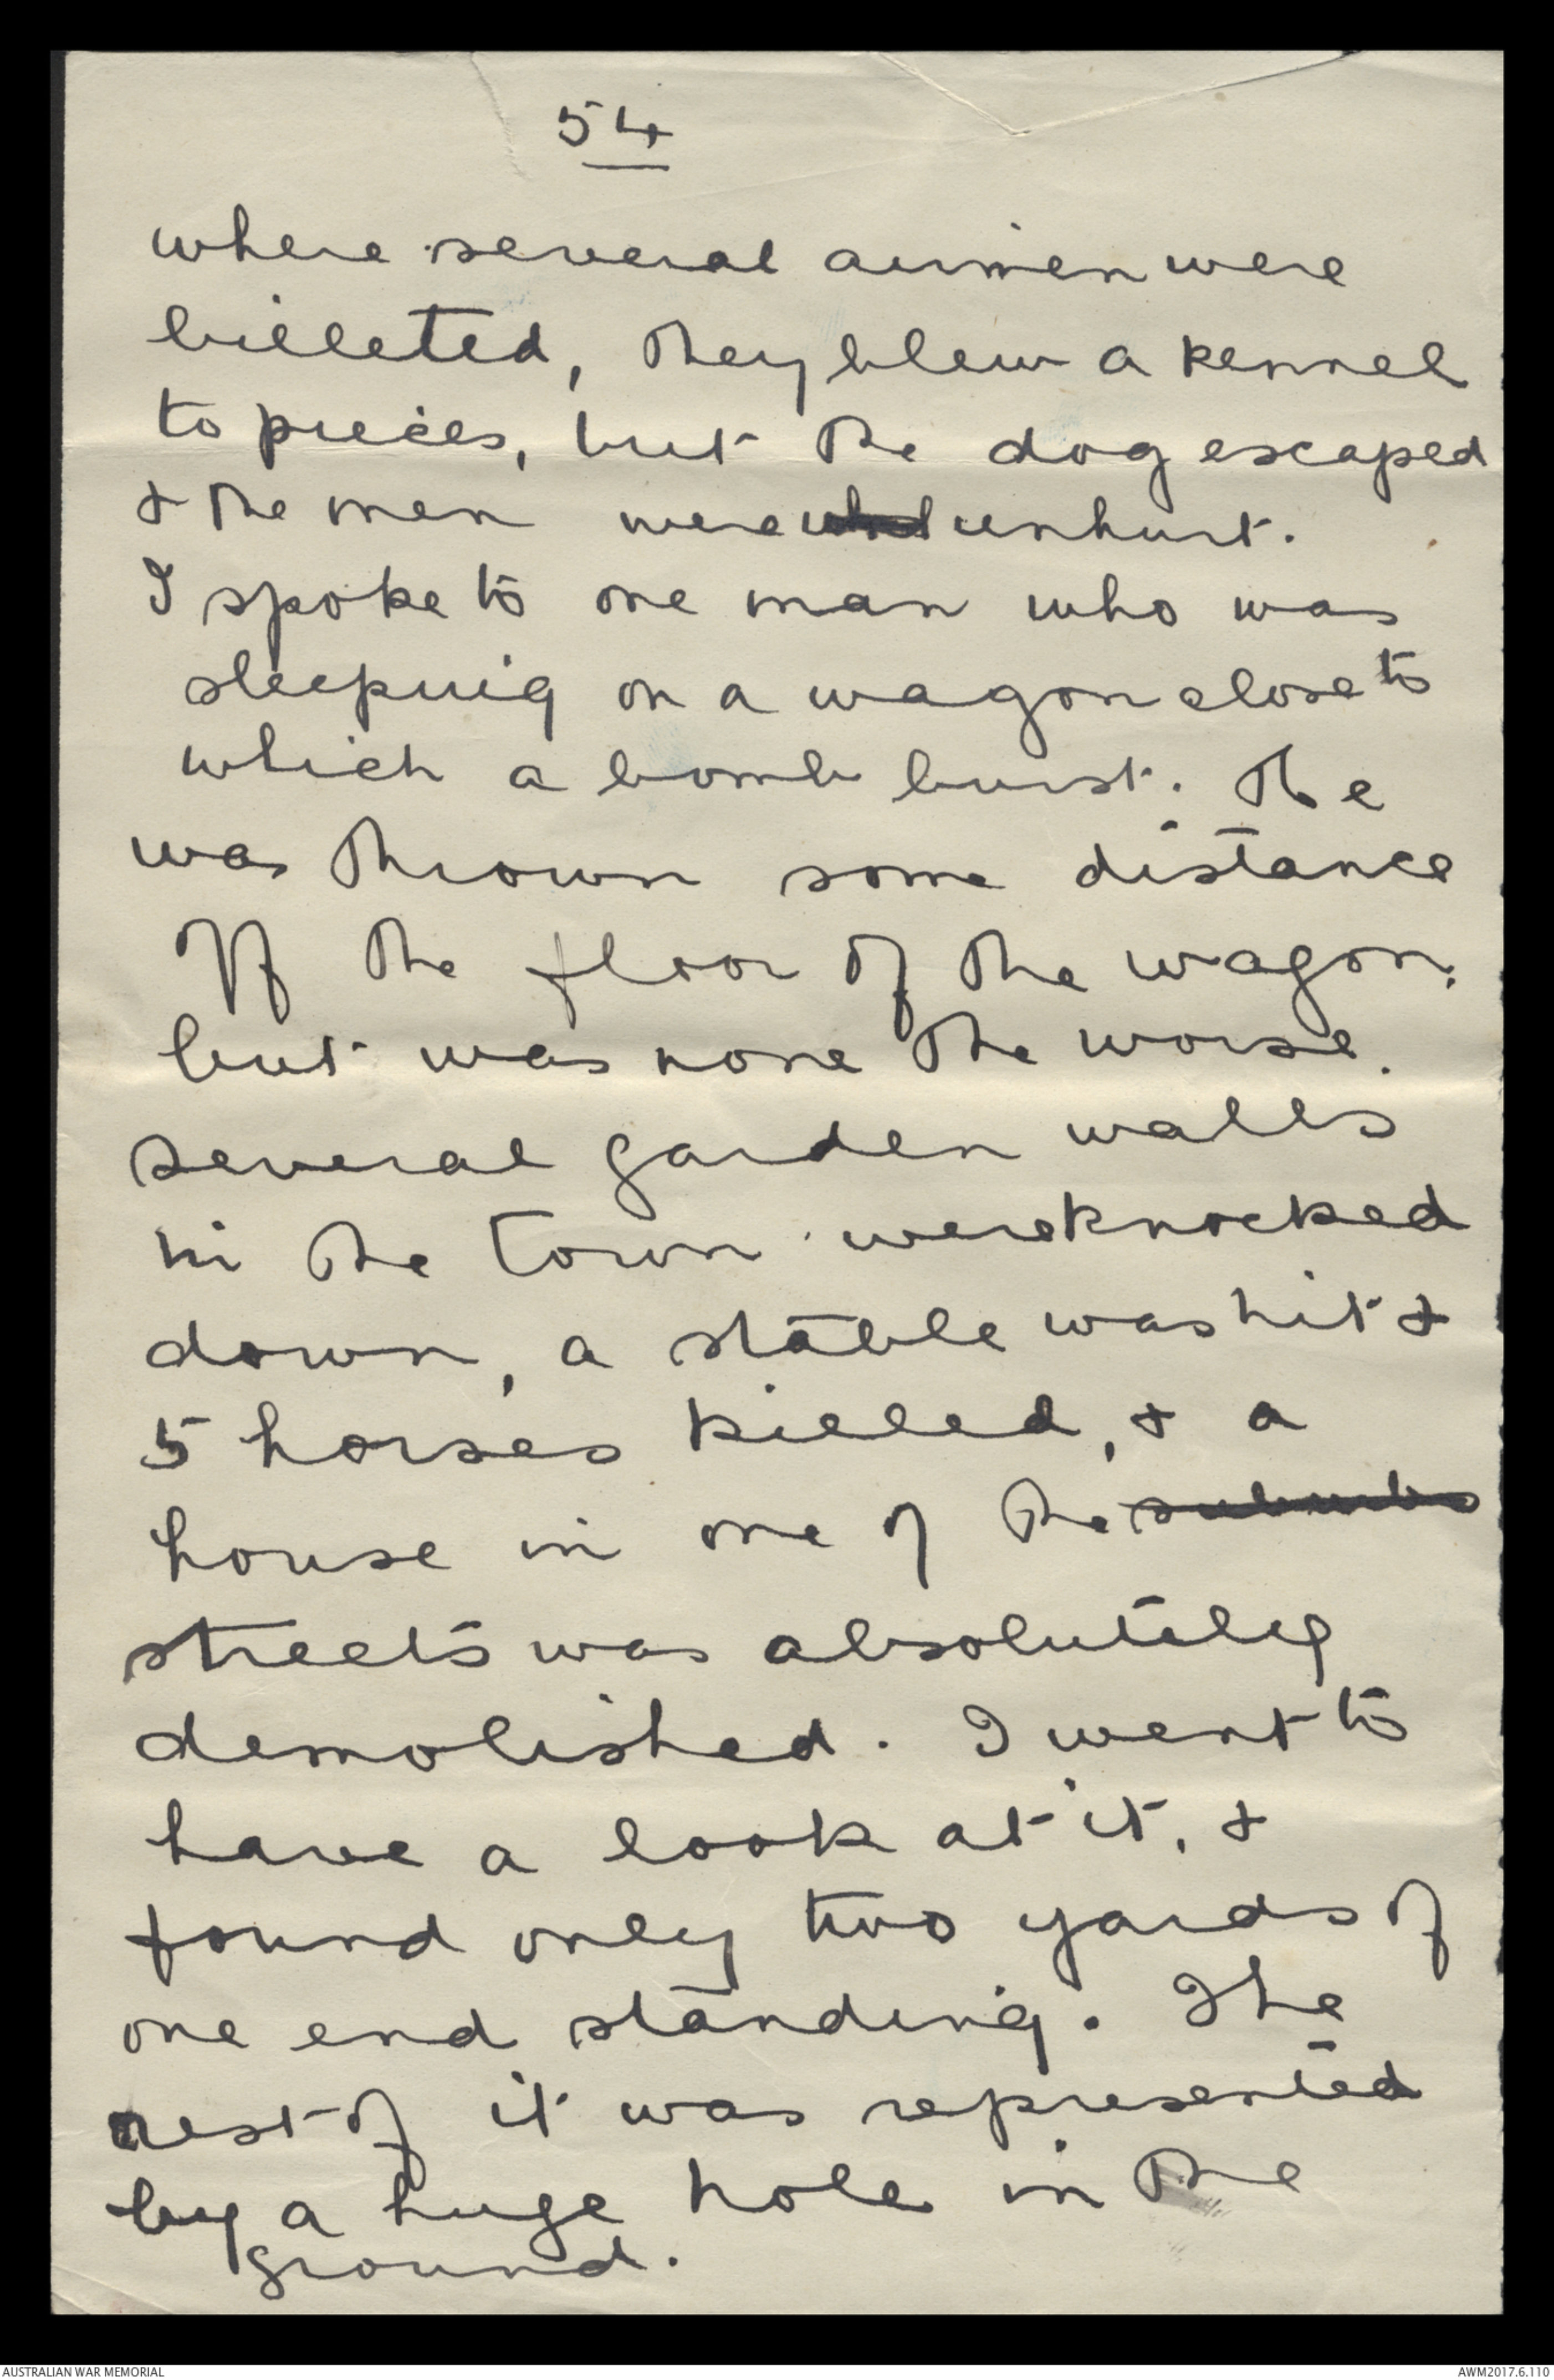 54
where several airmen were
billeted, they blew a kennel
to pieces, but the dog escaped
& the men were unhurt.
I spoke to one man who was
sleeping on a wagon close to
which a bomb burst. He
was thrown some distance
off the floor of the wagon,
but was none the worse.
Several garden walls
in the town were knocked
down, a stable was hit &
5 horses killed, & a
house in one of the suburbs
streets was absolutely
demolished. I went to
have a look at it, &
found only two yards of
one end standing. The
rest of it was represented
by a huge hole in the
ground.
AUSTRALIAN WAR MEMORIAL
AWM2017.6.110